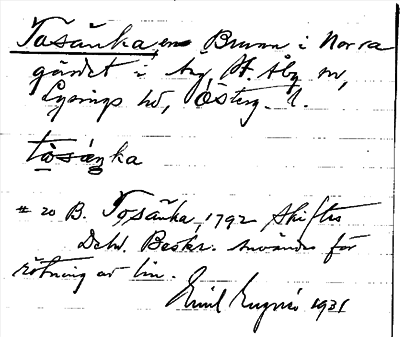 Tosänka, en Brunn i Norra
gärdet i by, St. Åby sn,
Lysings hd, Österg. l.
tòsæŋka
# 20 B. Tosänka, 1792 Skiftes
Deln. Beskr. Användes för
rötning av lin.
Emil 1931